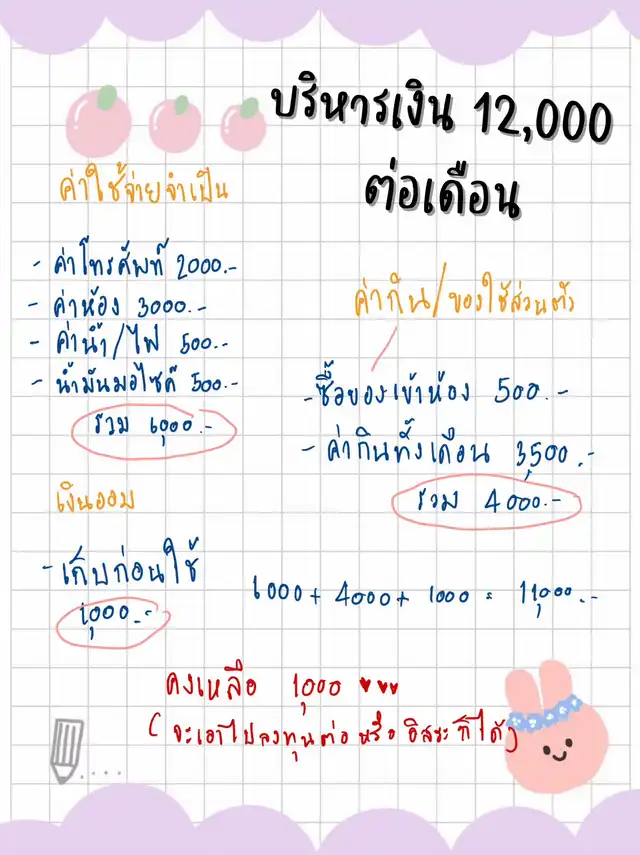 บริหารเงิน 12,000
ต่อเดือน
ค่าใช้จ่ายจำเป็น
- ค่าโทรศัพท์ 2000.-
- ค่าห้อง 3000.-
- ค่าน้ำ/ไฟ 500.-
- น้ำมันมอไซค์ 500.-
รวม 6,000.-
ค่ากิน/ของใช้ส่วนตัว
- ซื้อของเข้าห้อง 500.-
- ค่ากินทั้งเดือน 3,500.-
รวม 4,000.-
เงินออม
- เก็บก่อนใช้
1,000.-
6000 + 4000 + 1000 = 11,000.-
คงเหลือ 1,000 ♥♥♥
(จะเอาไปลงทุนต่อ หรือ อิสระก็ได้)